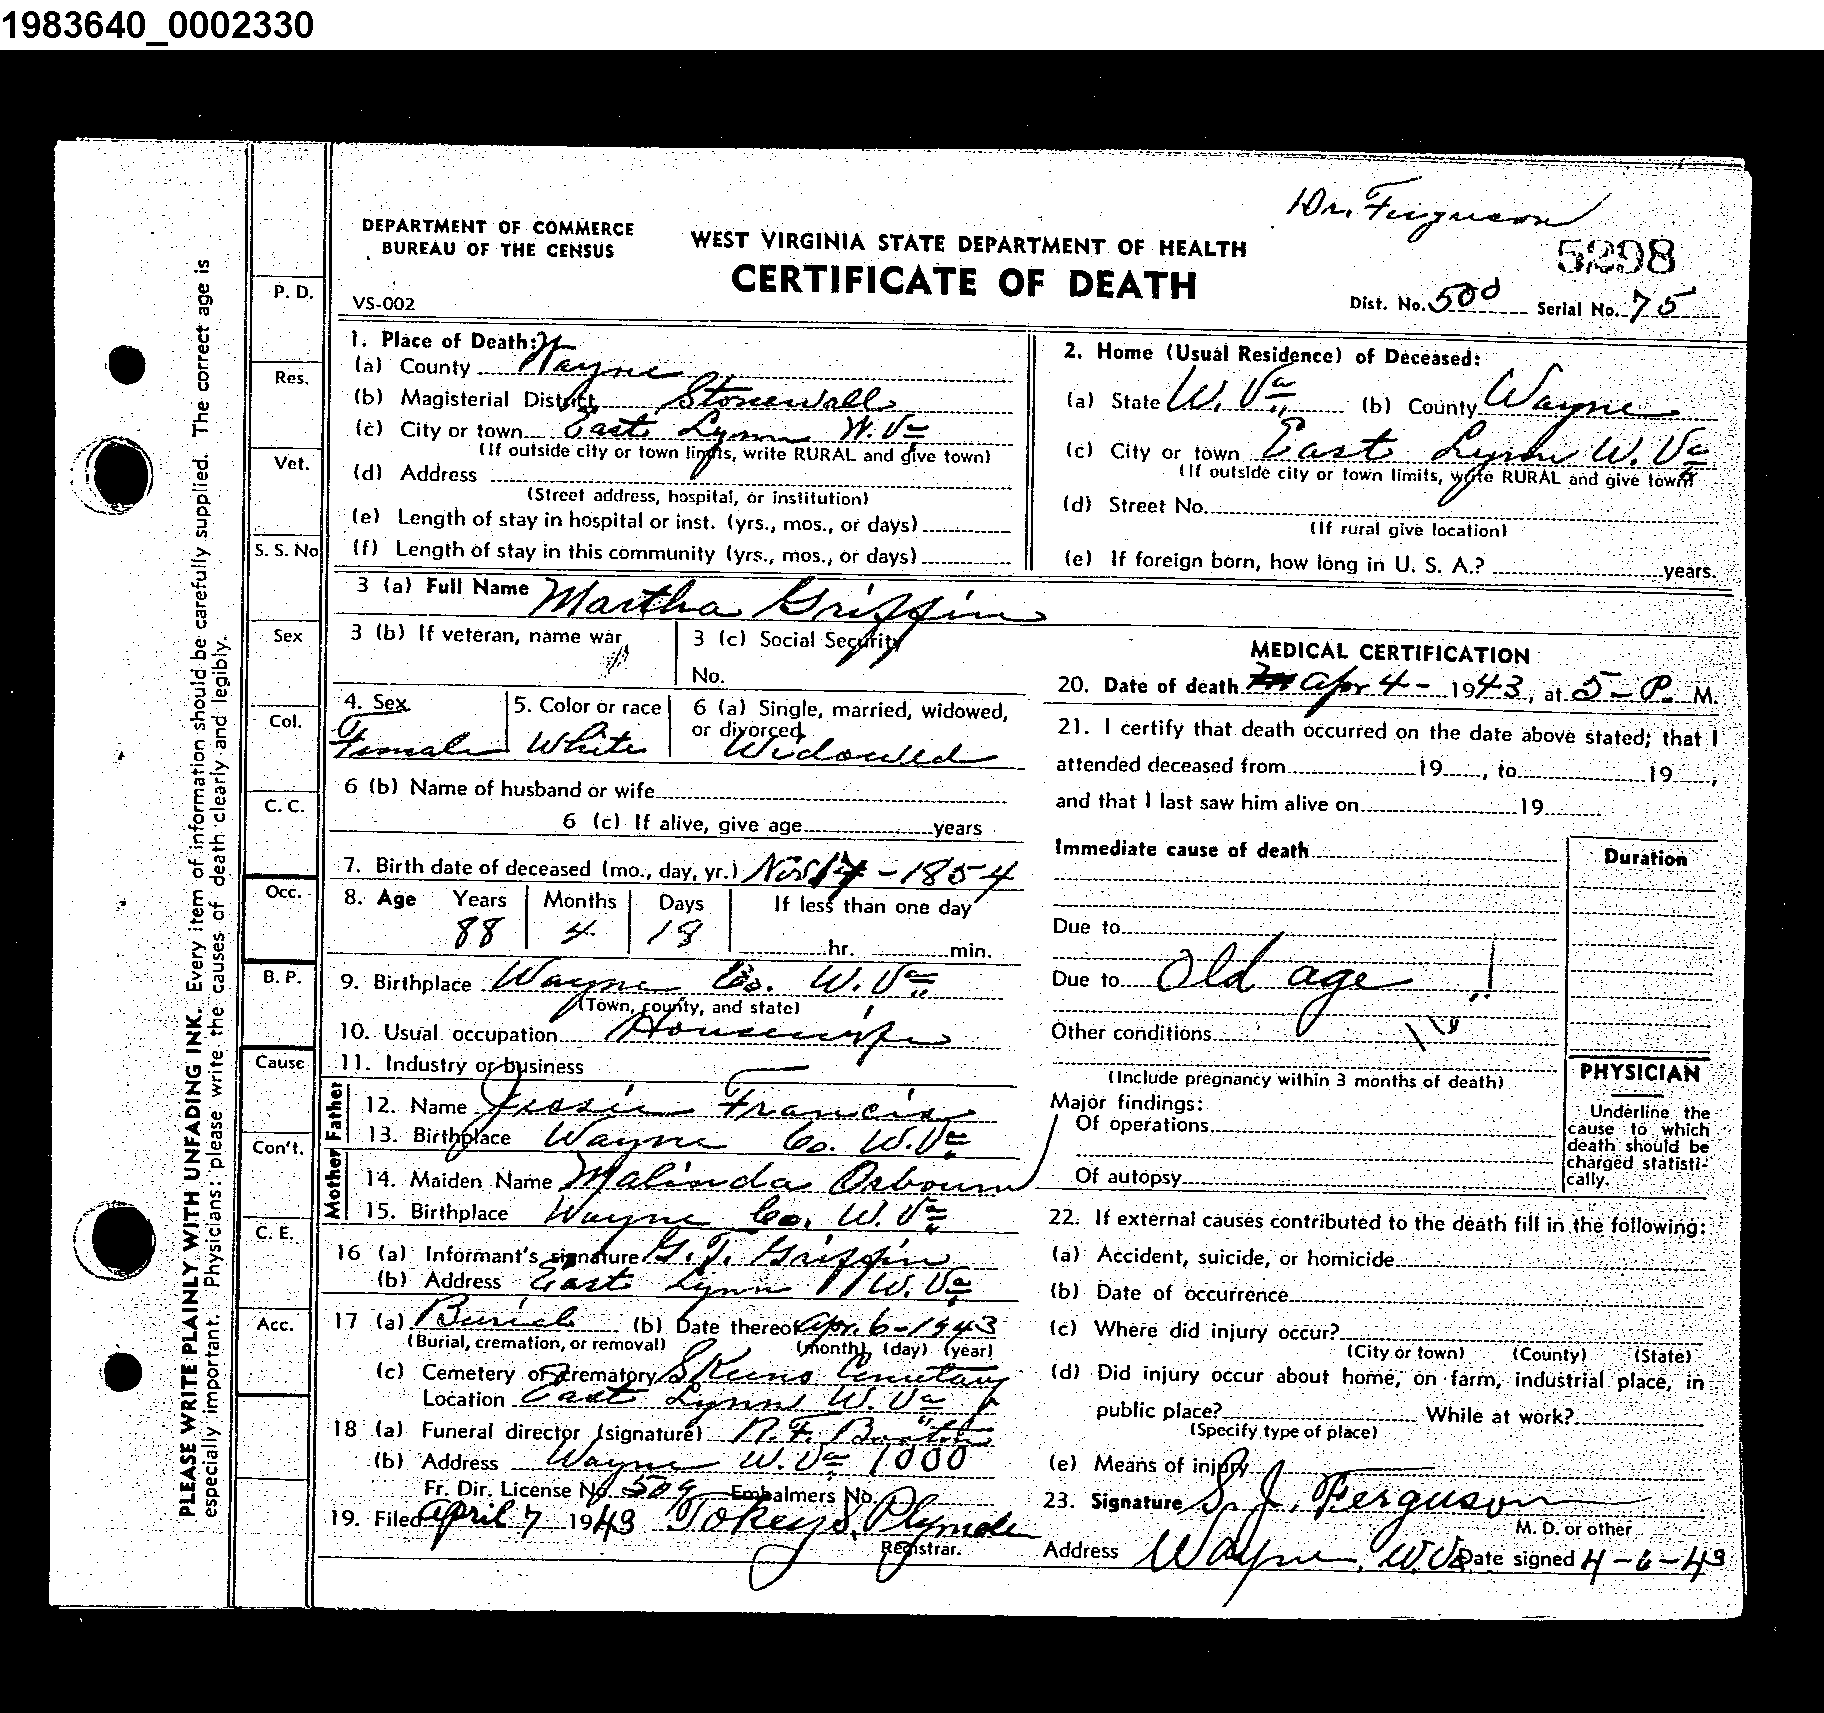 1983640_0002330
Dr. Ferguson
DEPARTMENT OF COMMERCE
BUREAU OF THE CENSUS
WEST VIRGINIA STATE DEPARTMENT OF HEALTH
5298
CERTIFICATE OF DEATH
VS-002
Dist. No. 500 Serial No. 75
PLEASE WRITE PLAINLY WITH UNFADING INK. Every item of information should be carefully supplied. The correct age is
especially important. Physicians: please write the causes of death clearly and legibly.
P. D.
Res.
Vet.
S. S. No
Sex
Col.
C. C.
Occ.
B. P.
Cause
Con't.
C. E.
Acc.
1. Place of Death:
(a) County Wayne
(b) Magisterial District Stonewall
(c) City or town East Lynn W. Va
(If outside city or town limits, write RURAL and give town)
(d) Address
(Street address, hospital, or institution)
(e) Length of stay in hospital or inst. (yrs., mos., or days)
(f) Length of stay in this community (yrs., mos., or days)
2. Home (Usual Residence) of Deceased:
(a) State W. Va (b) County Wayne
(c) City or town East Lynn W. Va
(If outside city or town limits, write RURAL and give town)
(d) Street No.
(If rural give location)
(e) If foreign born, how long in U. S. A.? years.
3 (a) Full Name Martha Griffin
3 (b) If veteran, name war
3 (c) Social Security
No.
4. Sex
Female
5. Color or race
White
6 (a) Single, married, widowed,
or divorced
Widowed
6 (b) Name of husband or wife
6 (c) If alive, give age years
7. Birth date of deceased (mo., day, yr.) Nov 17 - 1854
8. Age Years Months Days If less than one day
88 4 18 hr. min.
9. Birthplace Wayne Co. W. Va
(Town, county, and state)
10. Usual occupation Housewife
11. Industry or business
Father
12. Name Jessie Francis
13. Birthplace Wayne Co. W. Va
Mother
14. Maiden Name Malinda Osbourn
15. Birthplace Wayne Co. W. Va
16 (a) Informant's signature G. T. Griffin
(b) Address East Lynn W. Va
17 (a) Burial (b) Date thereof Apr. 6-1943
(Burial, cremation, or removal) (month) (day) (year)
(c) Cemetery or crematory Cemetary
Location East Lynn W. Va
18 (a) Funeral director (signature)
(b) Address Wayne W. Va 1000
Fr. Dir. License No. 509 Embalmers No.
19. Filed April 7 1943 Tokey S. Plymale
Registrar.
MEDICAL CERTIFICATION
20. Date of death Apr 4 - 1943, at 5- P. M.
21. I certify that death occurred on the date above stated; that I
attended deceased from 19 , to 19 ,
and that I last saw him alive on 19
Immediate cause of death
Duration
Due to
Due to Old age !
Other conditions
(Include pregnancy within 3 months of death)
Major findings:
Of operations
Of autopsy
PHYSICIAN
Underline the
cause to which
death should be
charged statisti-
cally.
22. If external causes contributed to the death fill in the following:
(a) Accident, suicide, or homicide
(b) Date of occurrence
(c) Where did injury occur?
(City or town) (County) (State)
(d) Did injury occur about home, on farm, industrial place, in
public place? While at work?
(Specify type of place)
(e) Means of injury
23. Signature S. J. Ferguson
M. D. or other
Address Wayne, W. Va Date signed 4-6-43